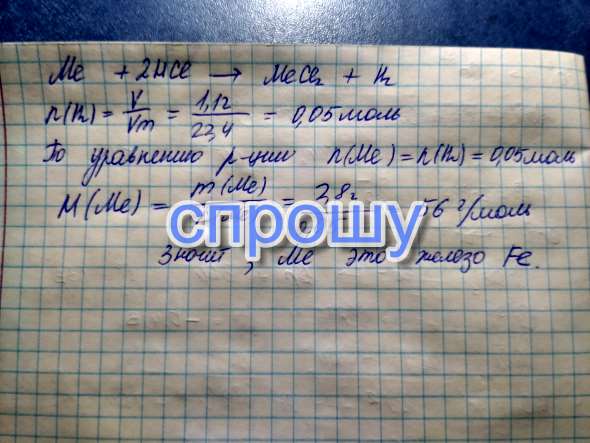 Me + 2HCl → MeCl₂ + H₂
n(H₂) = V/Vm = 1,12/22,4 = 0,05 моль
По уравнению р-ции n(Me) = n(H₂) = 0,05 моль
M(Me) = m(Me) = 2,8г 56 г/моль
спрошу
Значит, Me это железо Fe.